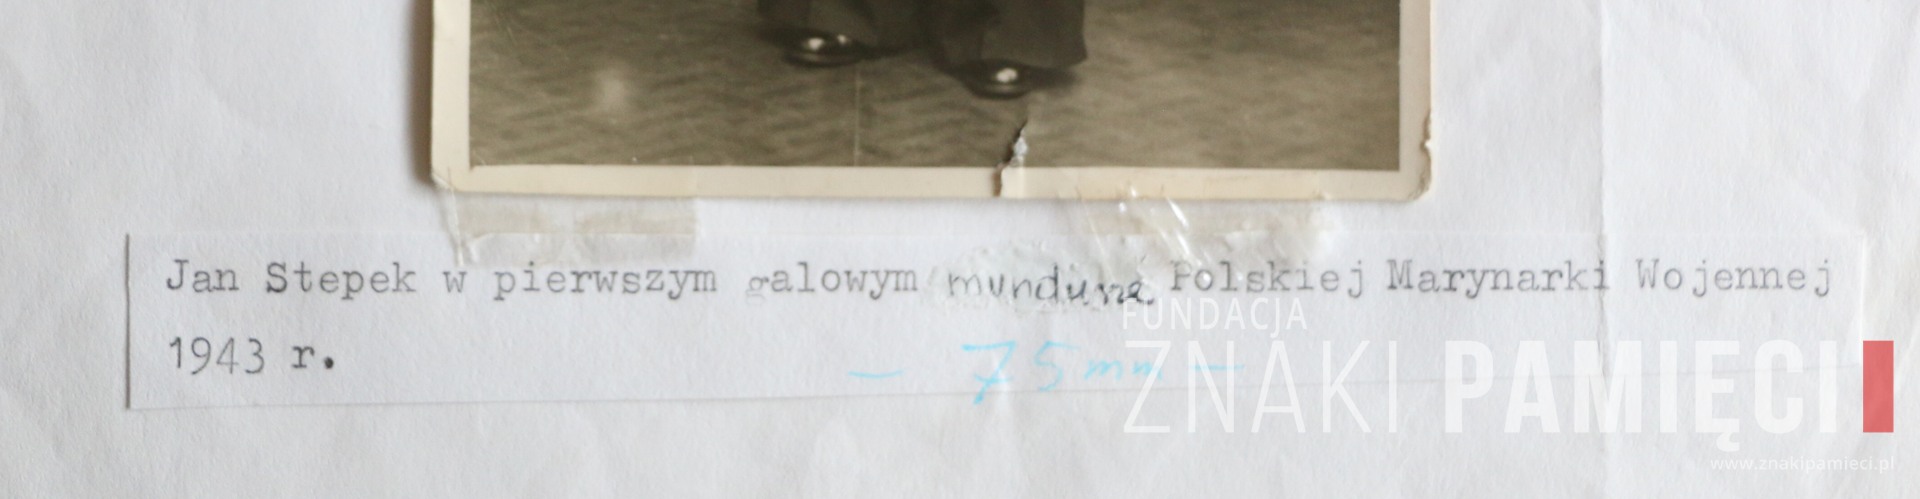 Jan Stepek w pierwszym galowym mundurze Polskiej Marynarki Wojennej
1943 r.
— 75 mm —
FUNDACJA
ZNAKI PAMIĘCI
www.znakipamieci.pl